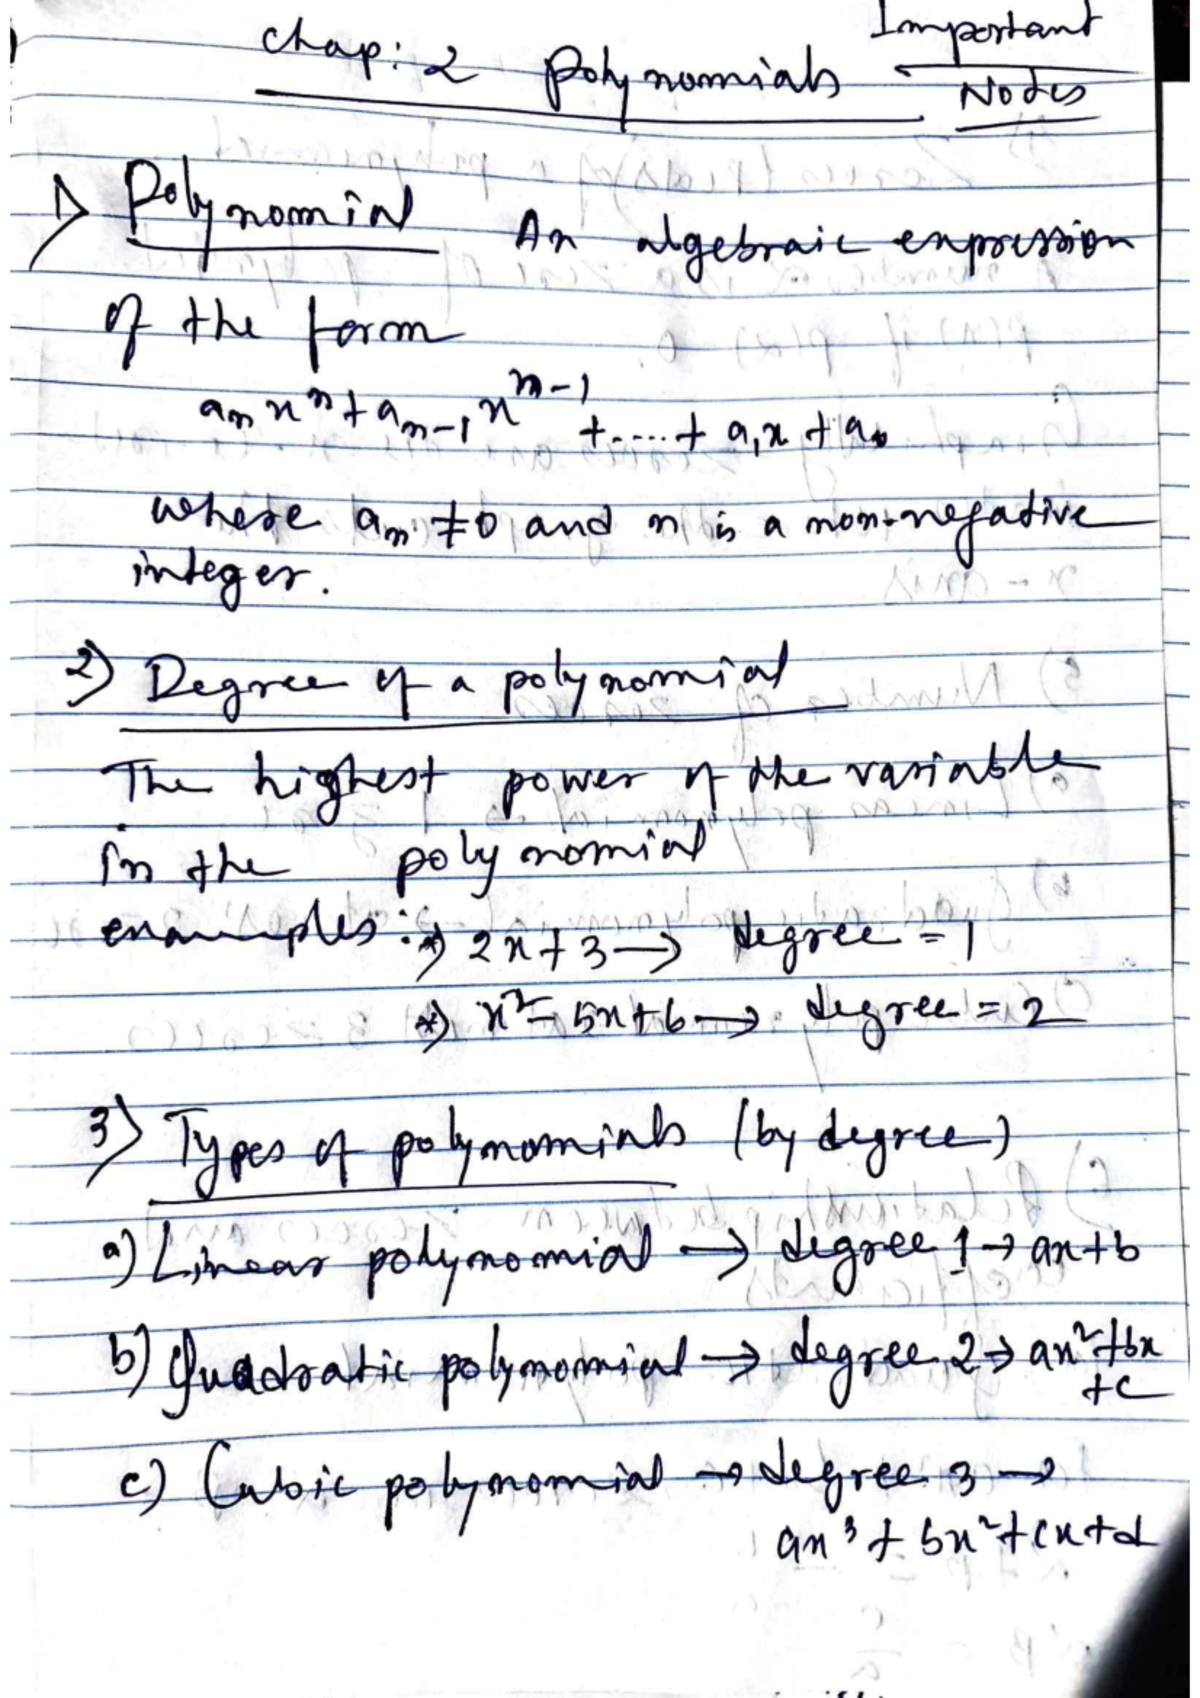 Important
Chap: 2 Polynomials
Notes
1) Polynomial An algebraic expression
of the form
aₙxⁿ + aₙ₋₁xⁿ⁻¹ + ..... + a₁x + a₀
where aₙ ≠ 0 and n is a non-negative
integer.
2) Degree of a polynomial
The highest power of the variable
in the polynomial
examples: *) 2x + 3 → degree = 1
*) x² - 5x + 6 → degree = 2
3) Types of polynomials (by degree)
a) Linear polynomial → degree 1 → ax + b
b) Quadratic polynomial → degree 2 → ax² + bx
+ c
c) Cubic polynomial → degree 3 →
ax³ + bx² + cx + d